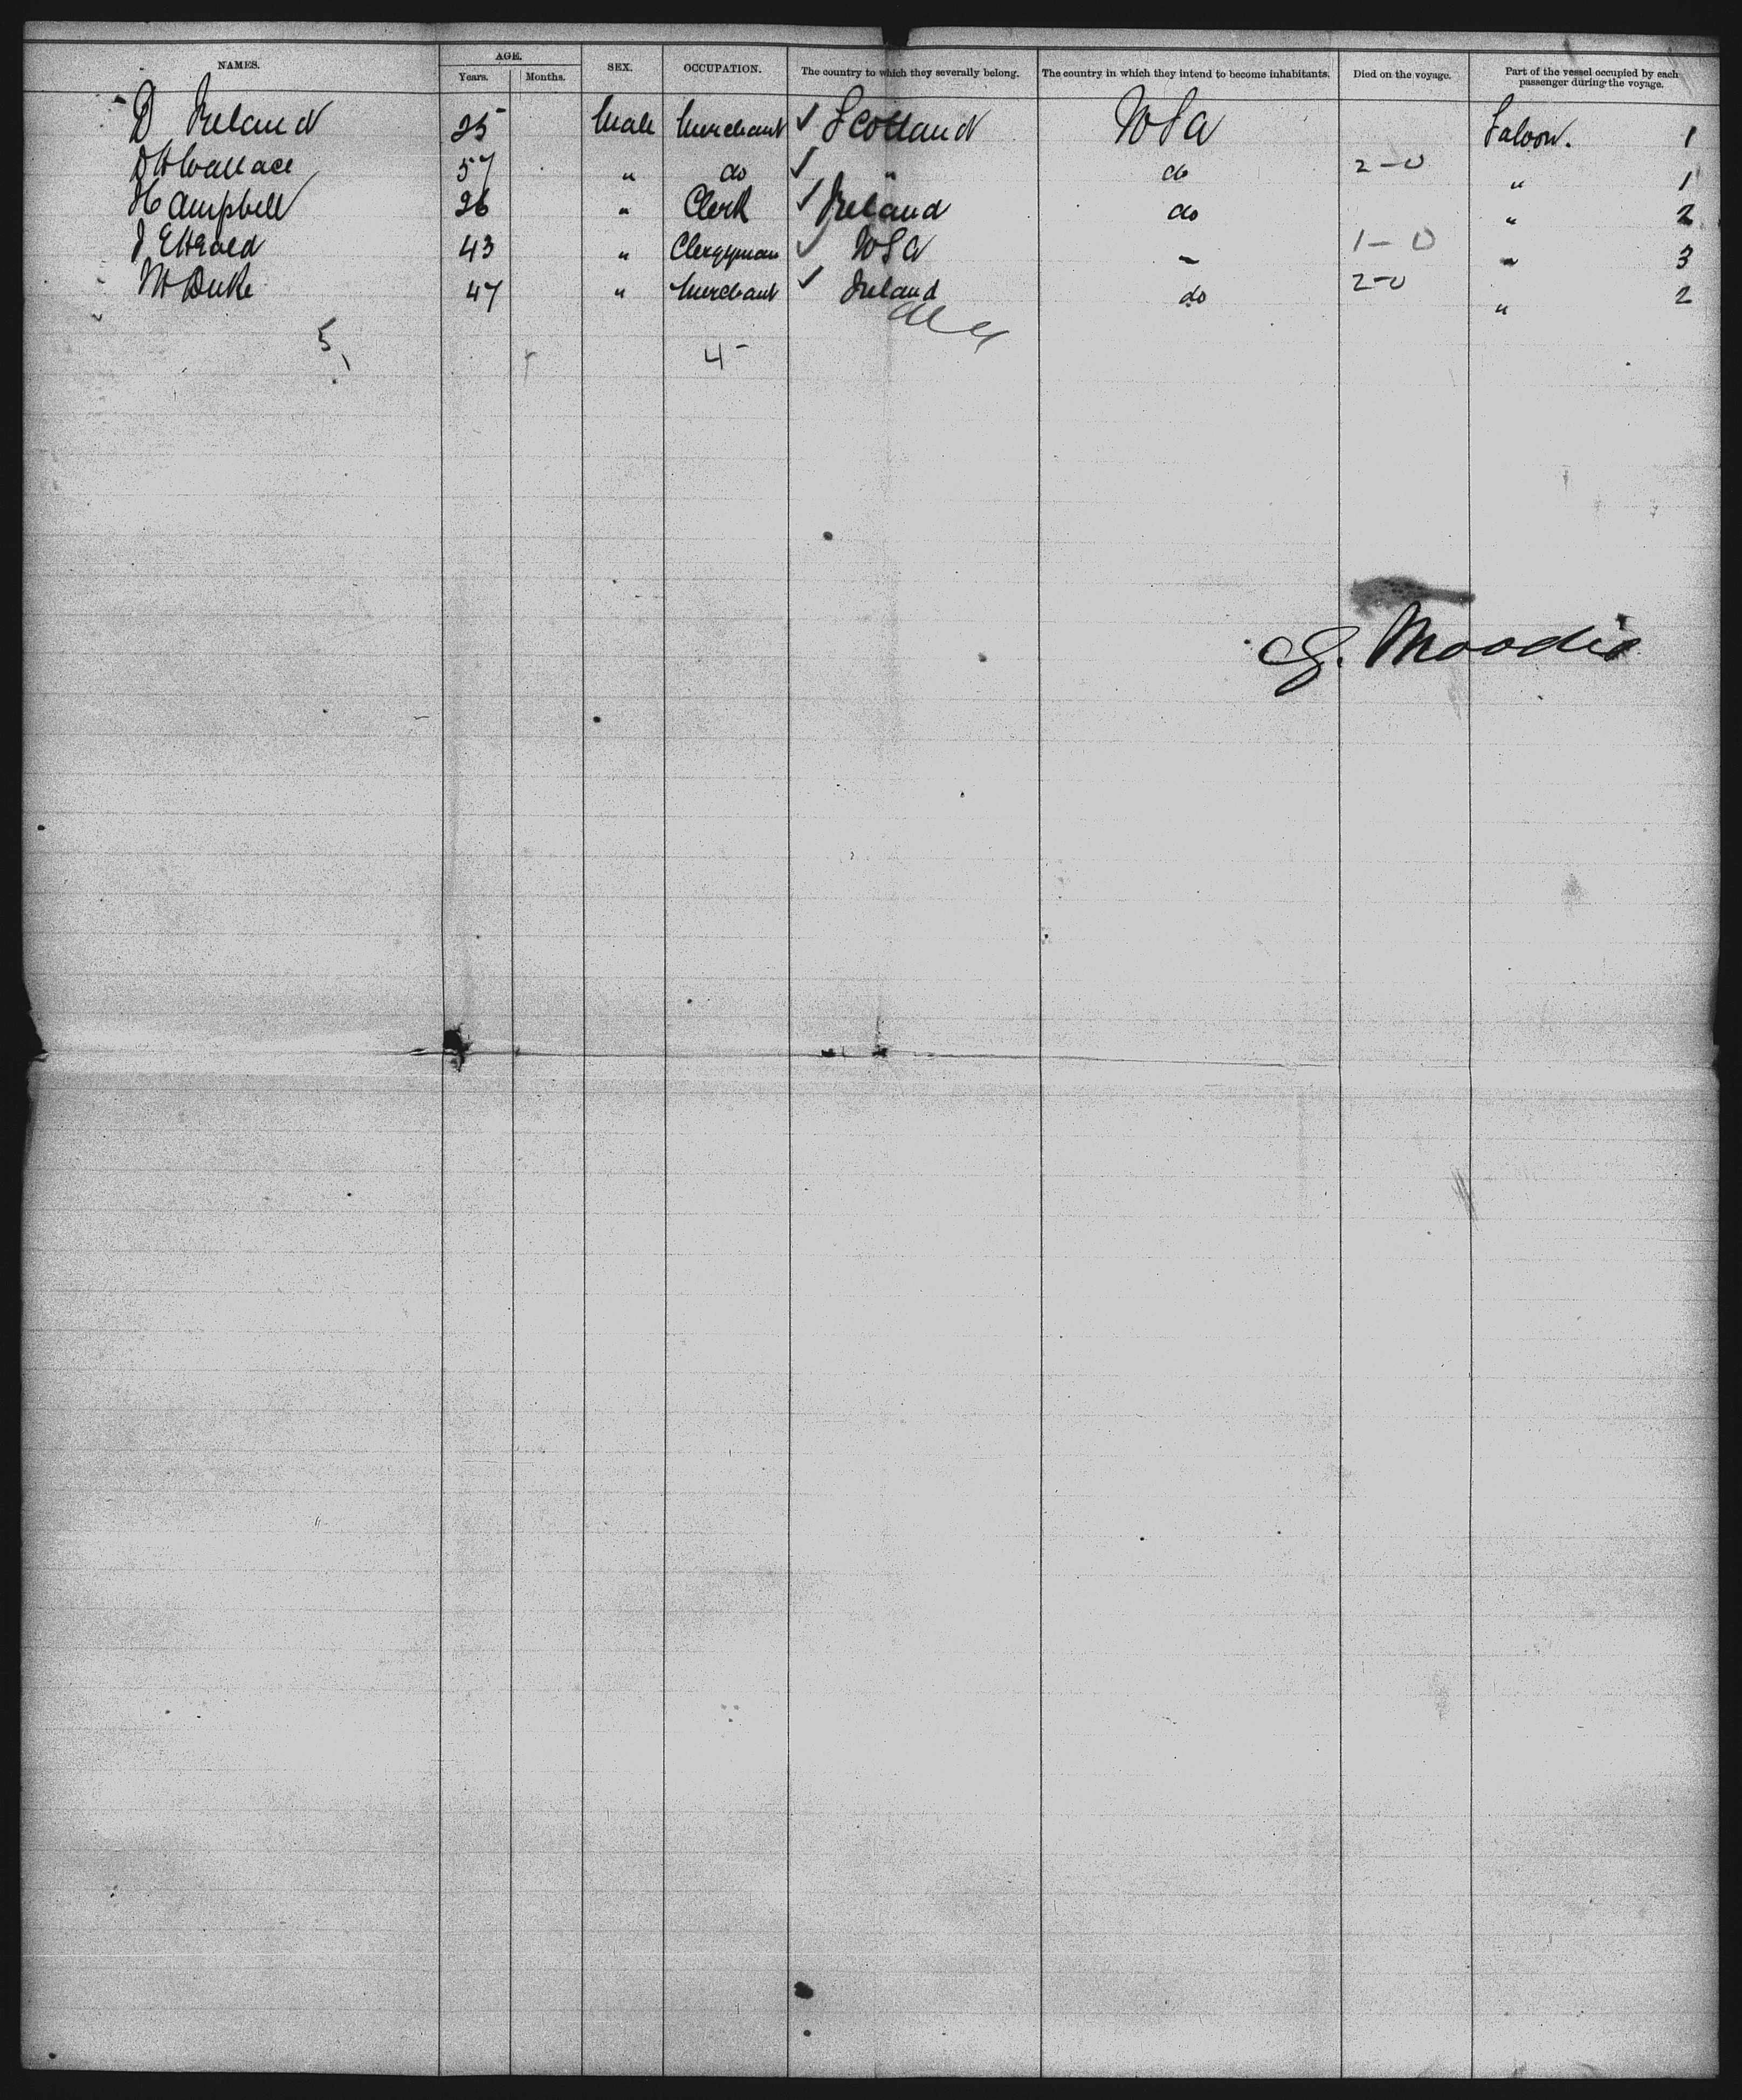 NAMES. AGE. SEX. OCCUPATION. The country to which they severally belong. The country in which they intend to become inhabitants. Died on the voyage. Part of the vessel occupied by each passenger during the voyage.
Years. Months.
D Ireland 25 Male Merchant ✓ Scotland USA Saloon. 1
D H Wallace 57 " do ✓ " do 2-0 " 1
H Campbell 26 " Clerk ✓ Ireland do " 2
43 " Clergyman ✓ USA - 1-0 " 3
M Duke 47 " Merchant ✓ Ireland do 2-0 " 2
5 4-
G. Moodie